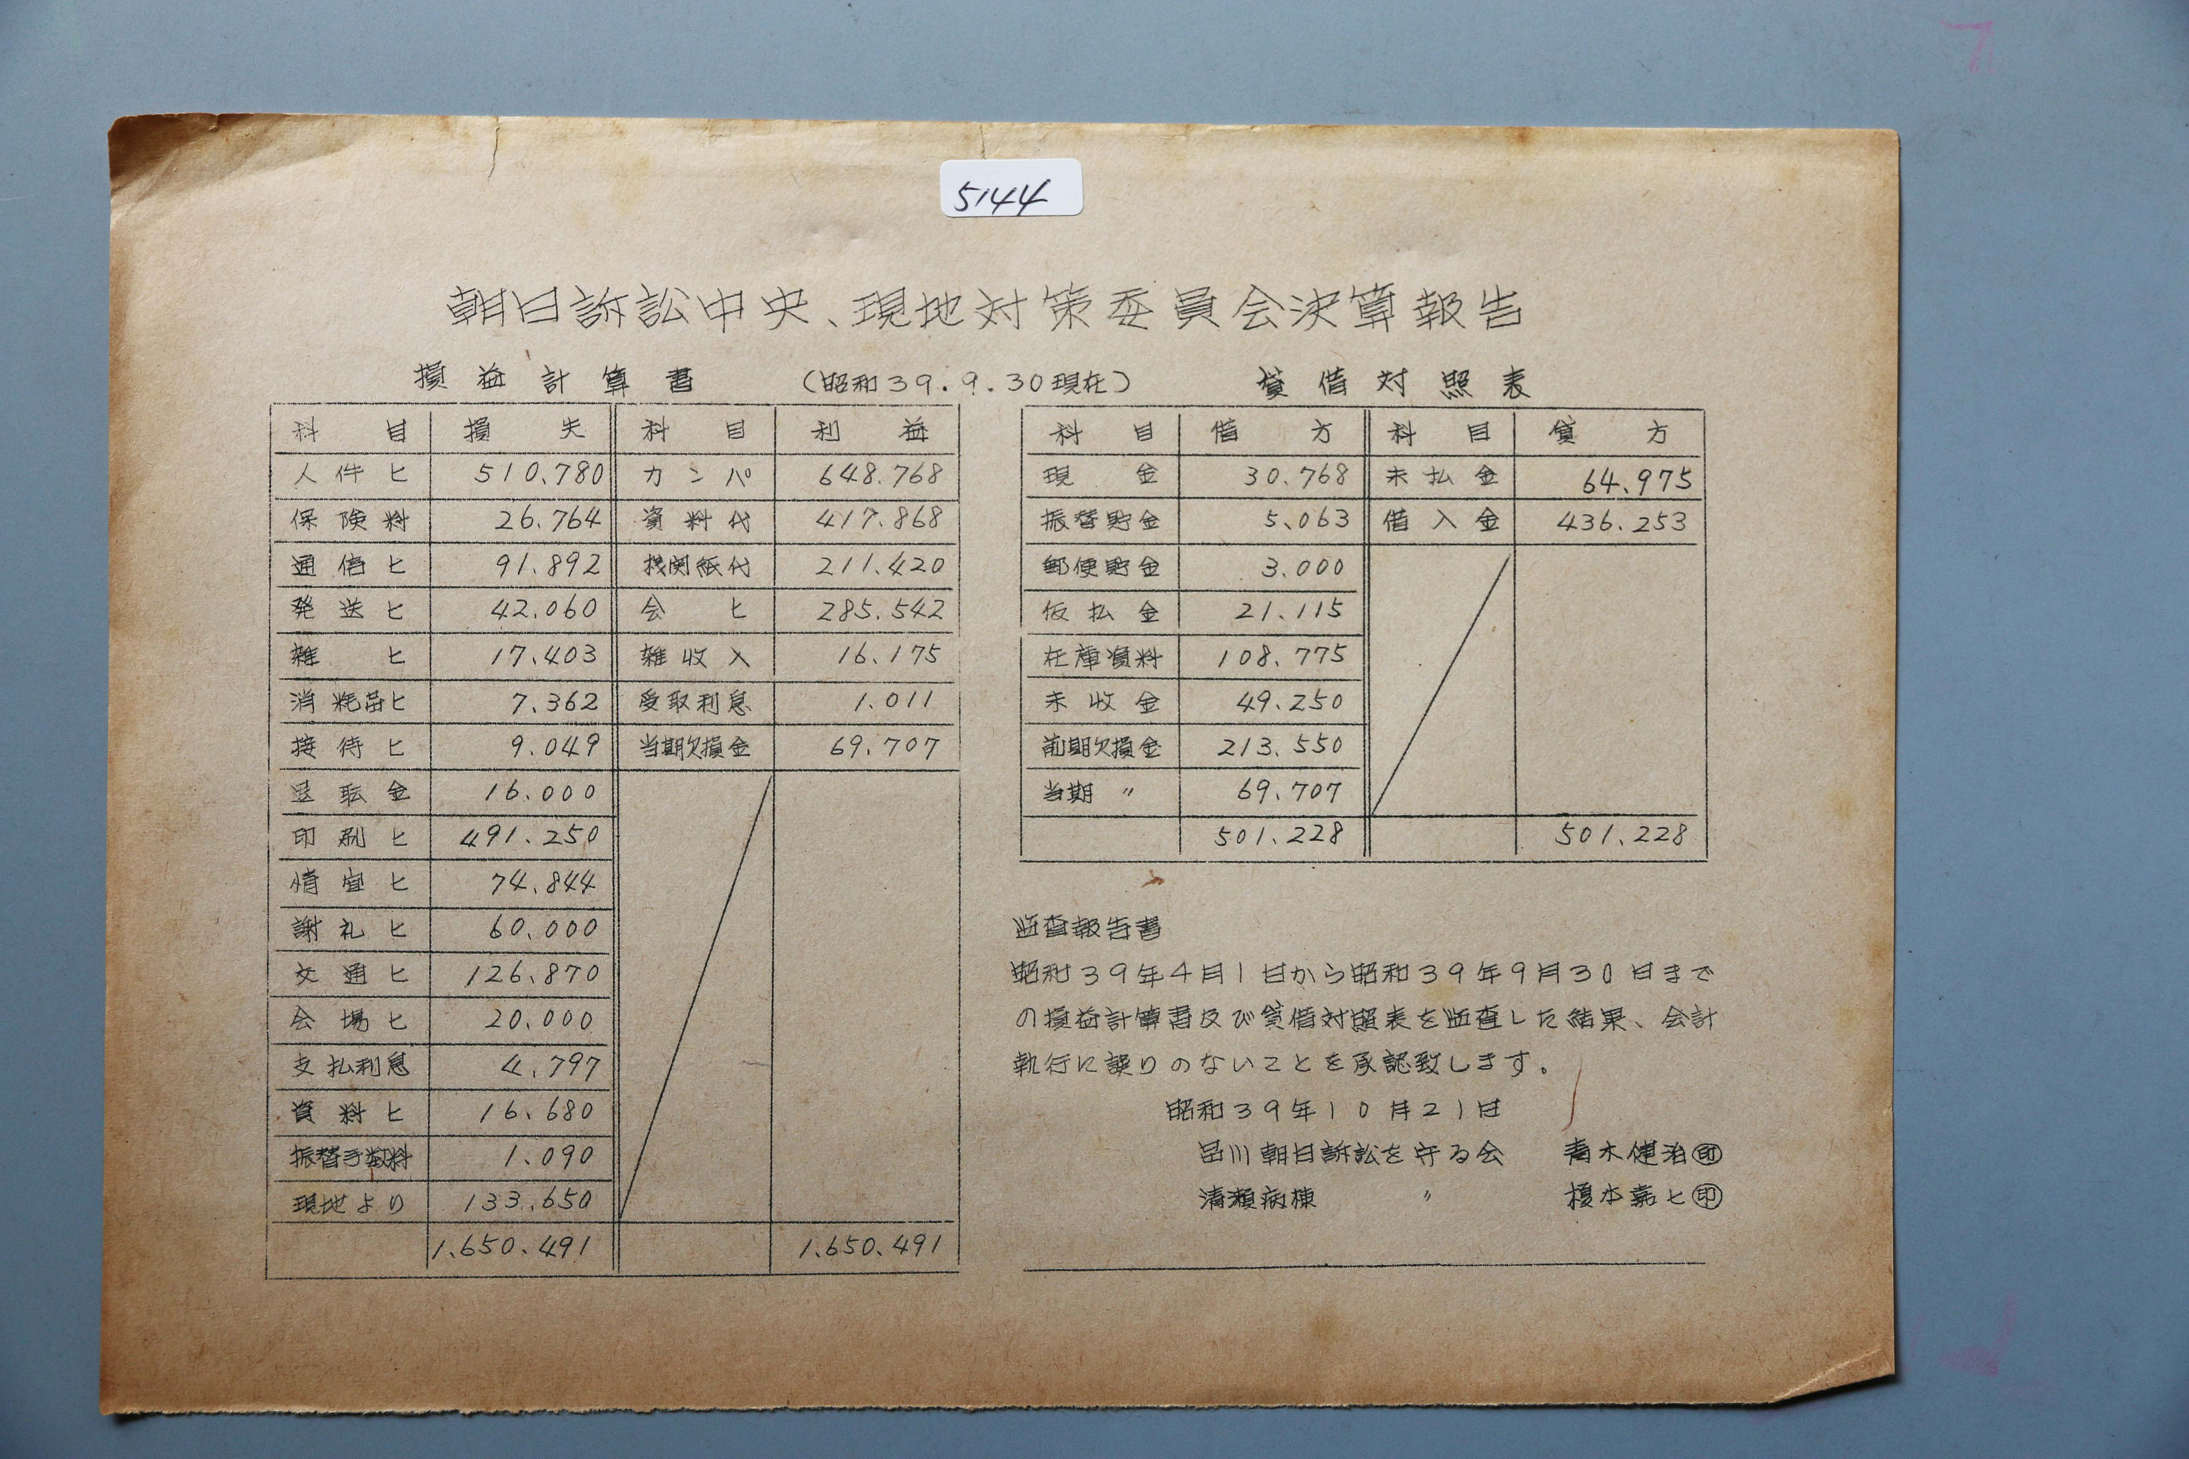 5144
朝日訴訟中央、現地対策委員会決算報告
損益計算書 (昭和39.9.30現在) 貸借対照表
科目 損失 科目 利益
人件ヒ 510,780 カンパ 648.768
保険料 26,764 資料代 417.868
通信ヒ 91.892 機関紙代 211.420
発送ヒ 42,060 会ヒ 285.542
雑ヒ 17.403 雑収入 16.175
消耗品ヒ 7.362 受取利息 1,011
接待ヒ 9.049 当期欠損金 69,707
退転金 16.000
印刷ヒ 491.250
情宣ヒ 74,844
謝礼ヒ 60,000
交通ヒ 126,870
会場ヒ 20,000
支払利息 4,797
資料ヒ 16,680
振替手数料 1,090
現地より 133,650
1,650,491 1,650,491
科目 借方 科目 貸方
現金 30,768 未払金 64,975
振替貯金 5,063 借入金 436.253
郵便貯金 3.000
仮払金 21,115
在庫資料 108,775
未収金 49,250
前期欠損金 213,550
当期〃 69,707
501,228 501,228
監査報告書
昭和39年4月1日から昭和39年9月30日まで
の損益計算書及び貸借対照表を監査した結果、会計
執行に誤りのないことを承認致します。
昭和39年10月21日
品川朝日訴訟を守る会 青木健治㊞
清瀬病棟 〃 榎本嘉ヒ㊞